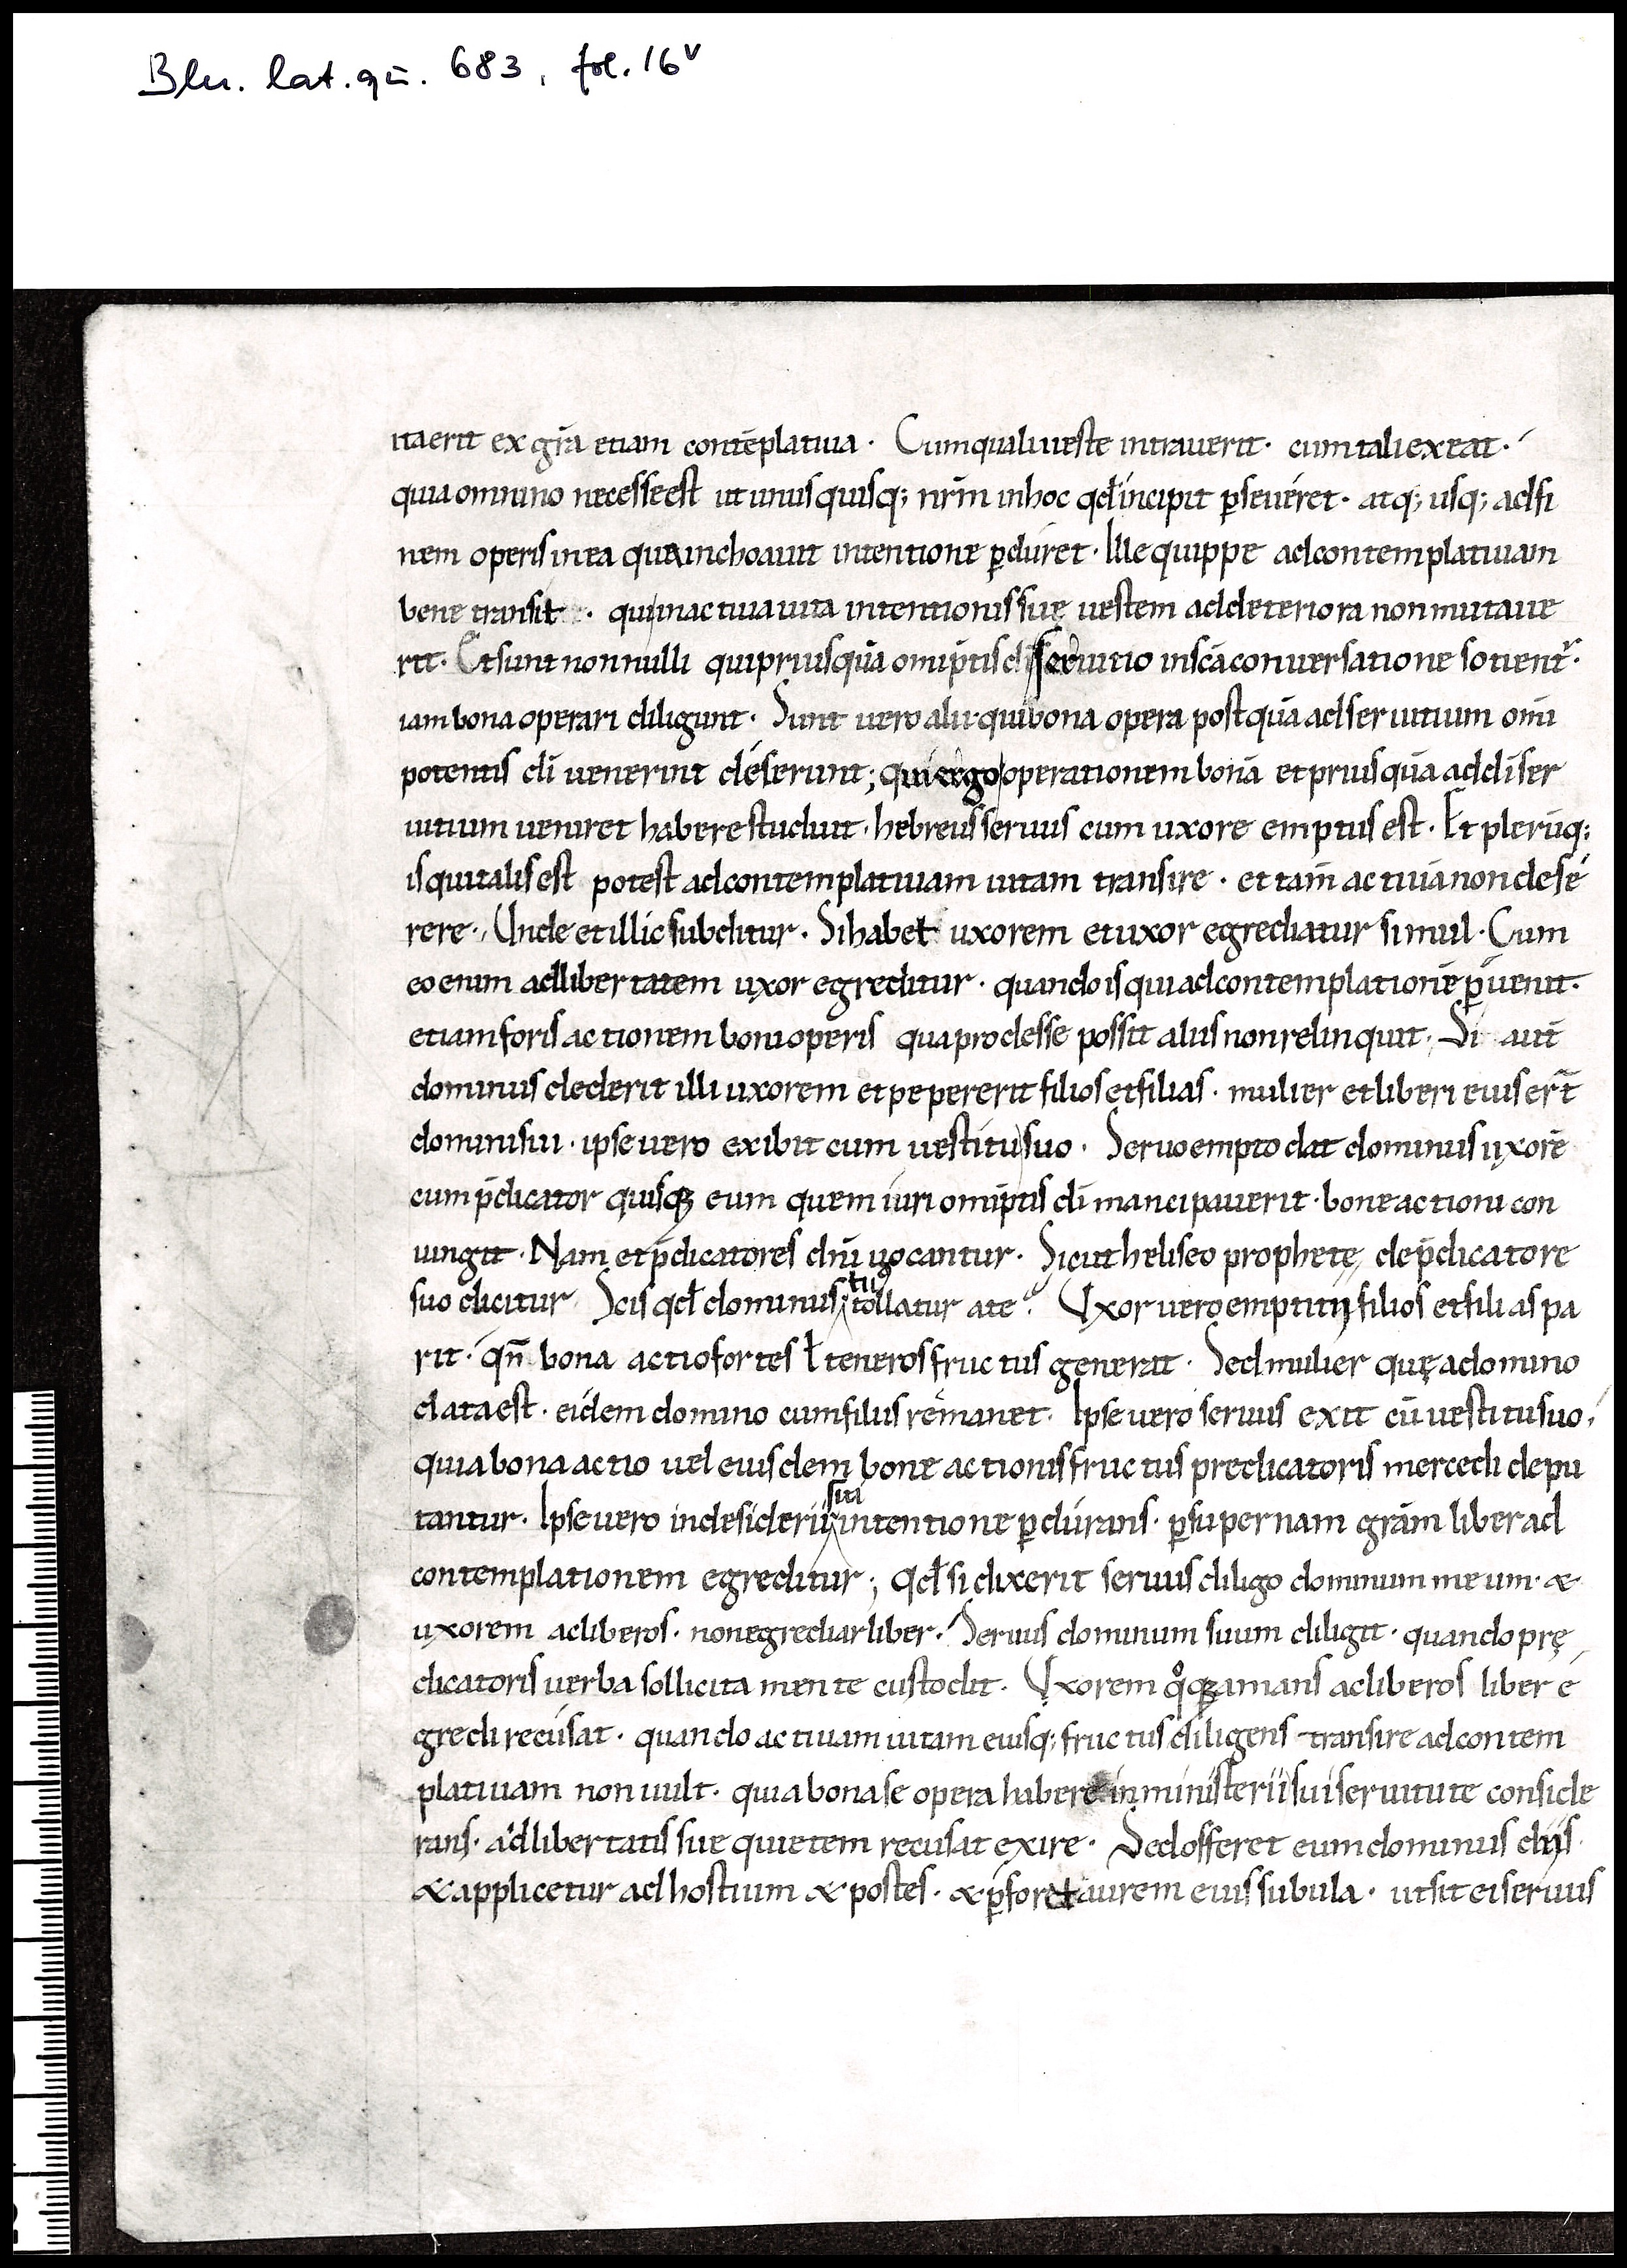 Bln. lat. qu. 683, fol. 16v
ita erit ex gr̄a etiam contēplatiua · Cum quali ueste intrauerit · cum tali exeat ·
quia omnino necesse est ut unusquisq; nr̄m in hoc qđ incipit p̱seuéret · atq; usq; ad fi
nem operis in ea qua inchoauit intentione p̱dúret · Ille quippe ad contemplatiuam
bene transit · qui in actiua uita intentionis suę uestem ad deteriora non mutaue
rit · Et sunt nonnulli qui priusquā omip̄tis dī seruitio in sc̄a conuersatione sotient᷑ ·
iam bona operari diligunt · Sunt uero alii · qui bona opera postquā ad seruitium omī
potentis dī uenerint déserunt; qui ergo operationem bonā et priusquā ad dī ser
uitium ueniret habere studuit · hebreus seruus cum uxore emptus est · Et plerūq;
is qui talis est potest ad contemplatiuam uitam transire · et tam̄ actiuā non desé
rere · Unde et illic subditur · Si habet uxorem et uxor egrediatur simul · Cum
eo enim ad libertatem uxor egreditur · quando is qui ad contemplationē p̱uenit ·
etiam foris actionem boni operis qua prodesse possit aliis non relinquit · Si aut̄
dominus dederit illi uxorem et pepererit filios et filias · mulier et liberi eius er̄t
domini sui · ipse uero exibit cum uestitu suo · Seruo empto dat dominus uxorē
cum p̄dicator quisq; eum quem iuri omip̄tis dī mancipauerit · bone actioni con
iungit · Nam et p̄dicatores dn̄i uocantur · Sicut heliseo prophetę de p̄dicatore
suo dicitur Scis qđ dominus tuus tollatur a te? Uxor uero emptitii filios et filias pa
rit · qn̄ bona actio fortes ł teneros fructus generat · Sed mulier quę a domino
data est · eidem domino cum filiis remanet · Ipse uero seruus exit cū uestitu suo ·
quia bona actio uel eiusdem bone actionis fructus predicatoris mercedi depu
tantur · Ipse uero in desiderii sui intentione p̱dúrans · p̱ supernam grām liber ad
contemplationem egreditur; Qđ si dixerit seruus diligo dominum meum · &
uxorem ac liberos · non egrediar liber · Seruus dominum suum diligit · quando prę
dicatoris uerba sollicita mente custodit · Uxorem qͦq; amans ac liberos liber é
gredi recúsat · quando actiuam uitam eiusq; fructus diligens transire ad contem
platiuam non uult · quia bona se opera habere in ministerii sui seruitute conside
rans · ad libertatis sue quietem recusat exire · Sed offeret eum dominus diis ·
& applicetur ad hostium & postes · & p̱foret aurem eius subula · ut sit ei seruus